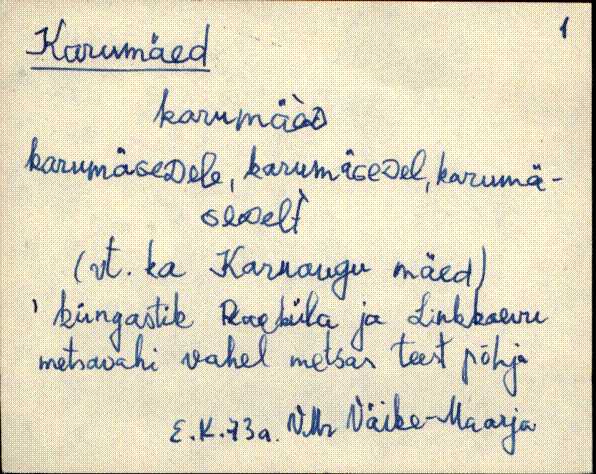 1
Karumäed
karumä̀ᴇᴅ
karumäɢeᴅele, karumäɢeᴅel, karumä-
ɢeᴅelt̀
(vt. ka Karuaugu mäed)
' küngastik Raeküla ja Linkkaevu
metsavahi vahel metsas teest põhja
E.K.73a. VMr Väike-Maarja